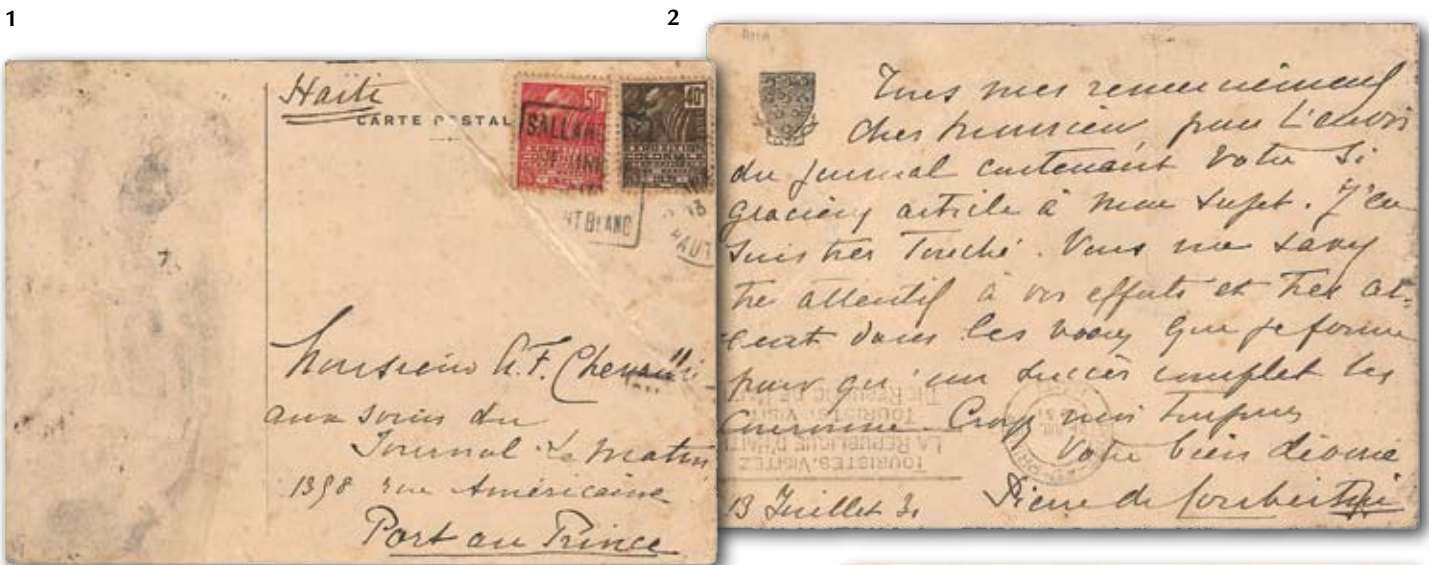 1
Haïti
CARTE POSTAL
50c
40c
SALLANC
NT BLANC
HAUT
7.
Monsieur A.F. Chevallier
aux soins du
Journal Le Matin
1358 rue Américaine
Port au Prince
2
Tous mes remerciements
cher monsieur pour l'envoi
du journal contenant votre si
gracieux article à mon sujet. J'en
suis très touché. Vous me savez
très attentif à vos efforts et très
dans les voeux que je forme
pour qu'un succès complet les
couronne. Croyez moi toujours
Votre bien dévoué
13 Juillet 31 Pierre de Coubertin
TOURISTES, VISITEZ
LA REPUBLIQUE D'HAITI
TOURISTS, VISIT